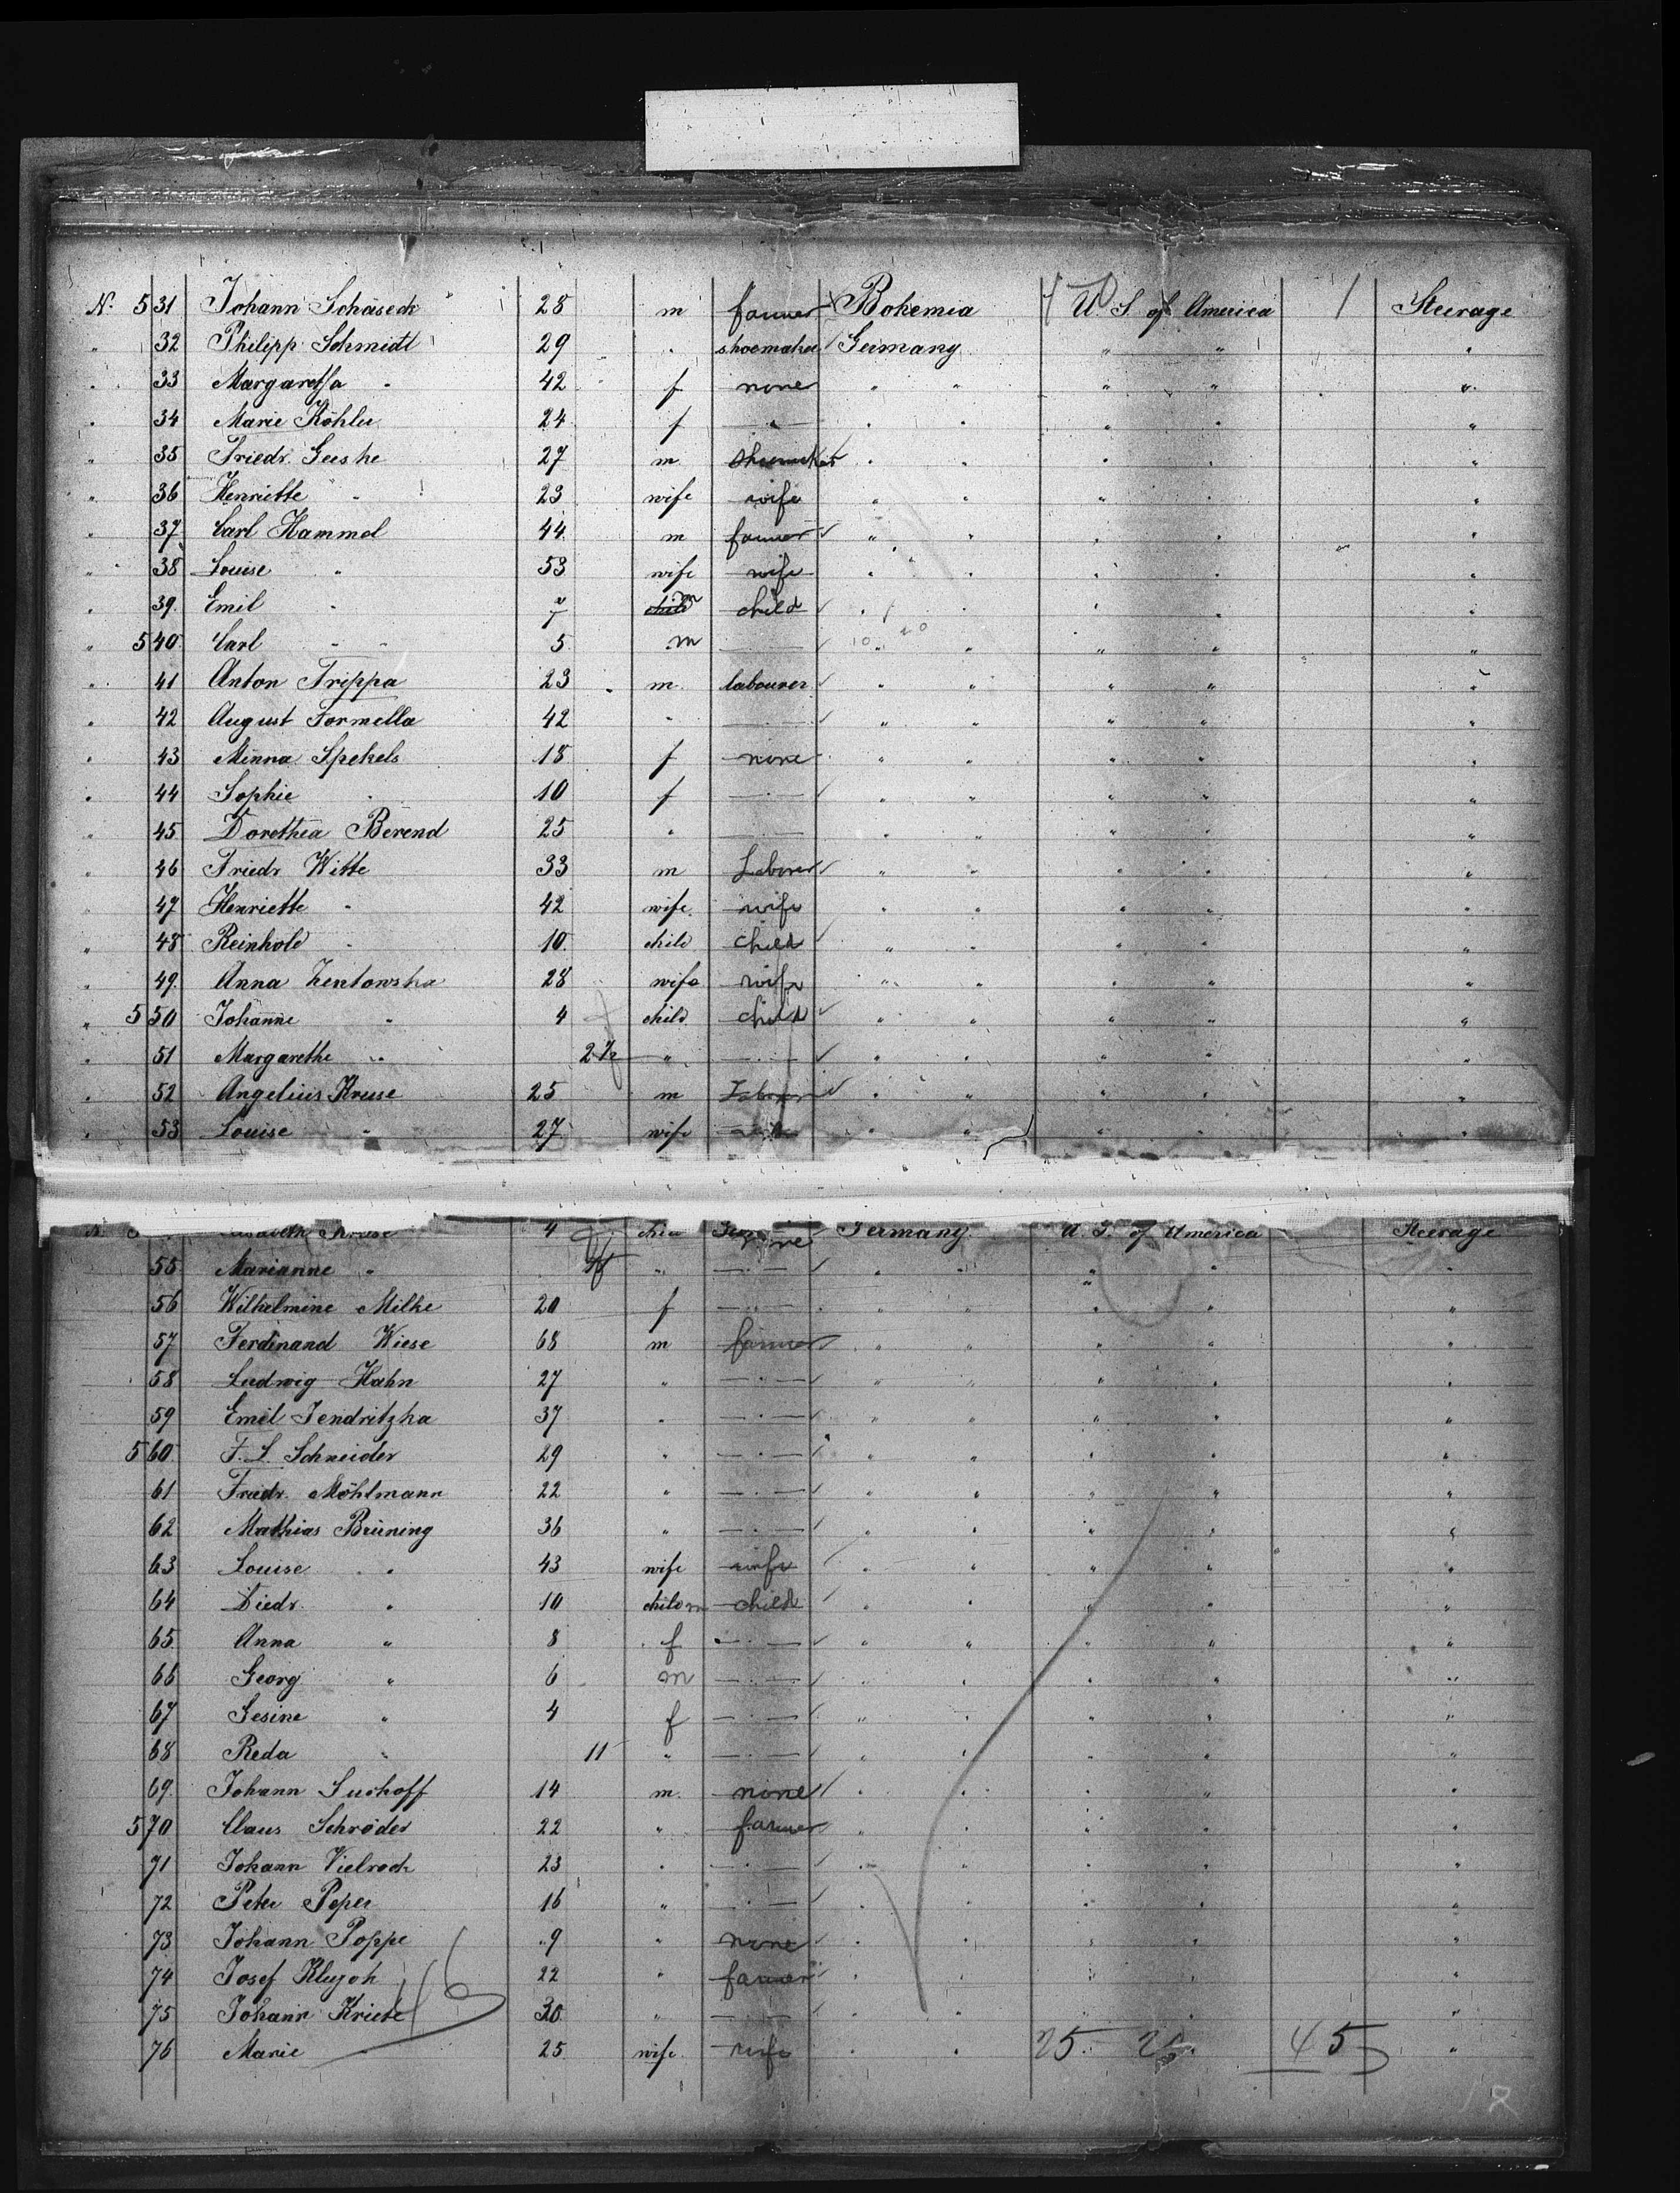 N. 531 Johann Schaseck 28 m farmer Bohemia U. S. of America / Steerage
" 32 Philipp Schmidt 29 " shoemaker Germany " " "
" 33 Margaretha " 42 f none " " " " "
" 34 Marie Köhler 24 f " " " " " "
" 35 Friedr. Geeske 27 m shoemaker " " " " "
" 36 Henriette " 23 wife wife " " " " "
" 37 Carl Hammel 44 m farmer " " " " "
" 38 Louise " 53 wife wife " " " " "
" 39. Emil " 7 child m child " " " " "
" 540 Carl " 5 m — " " " " "
" 41 Anton Trippa 23 m. labourer " " " " "
" 42 August Formella 42 " — " " " " "
" 43 Minna Spekels 18 f none " " " " "
" 44 Sophie " 10 f — " " " " "
" 45 Dorethea Berend 25 " — " " " " "
" 46 Friedr Witte 33 m Laborer " " " " "
" 47 Henriette " 42 wife wife " " " " "
" 48 Reinhold " 10 child child " " " " "
" 49. Anna Zentowska 28 wife wife " " " " "
" 550 Johanne " 4 child child " " " " "
" 51 Margarethe " 2 1/2 " — " " " " "
" 52 Angelius Kruse 25 m Laborer " " " " "
" 53 Louise " 27 wife " " " " "
Kruse 4 none Germany U. S. of America Steerage
55 Marianne " " — " " " " "
56 Wilhelmine Milke 20 f — " " " " "
57 Ferdinand Wiese 68 m farmer " " " " "
58 Ludwig Hahn 27 " — " " " " "
59 Emil Jendritzka 37 " — " " " " "
560 F. L. Schneider 29 " — " " " " "
61 Friedr. Möhlmann 22 " — " " " " "
62 Mathias Brüning 36 " — " " " " "
63 Louise " 43 wife wife " " " " "
64 Diedr. " 10 child m child " " " " "
65. Anna " 8 f — " " " " "
66 Georg " 6 m — " " " " "
67 Gesine " 4 f — " " " " "
68 Reda " 11 " — " " " " "
69. Johann Suchoff 14 m. none " " " " "
570 Claus Schröder 22 " farmer " " " " "
71 Johann Vielrock 23 " — " " " " "
72 Peter Peper 16 " — " " " " "
73 Johann Poppe 9 " none " " " " "
74 Josef 22 " farmer " " " " "
75 Johann Kriete 30 " — " " " " "
76 Marie 25 wife wife " " 25 45 "